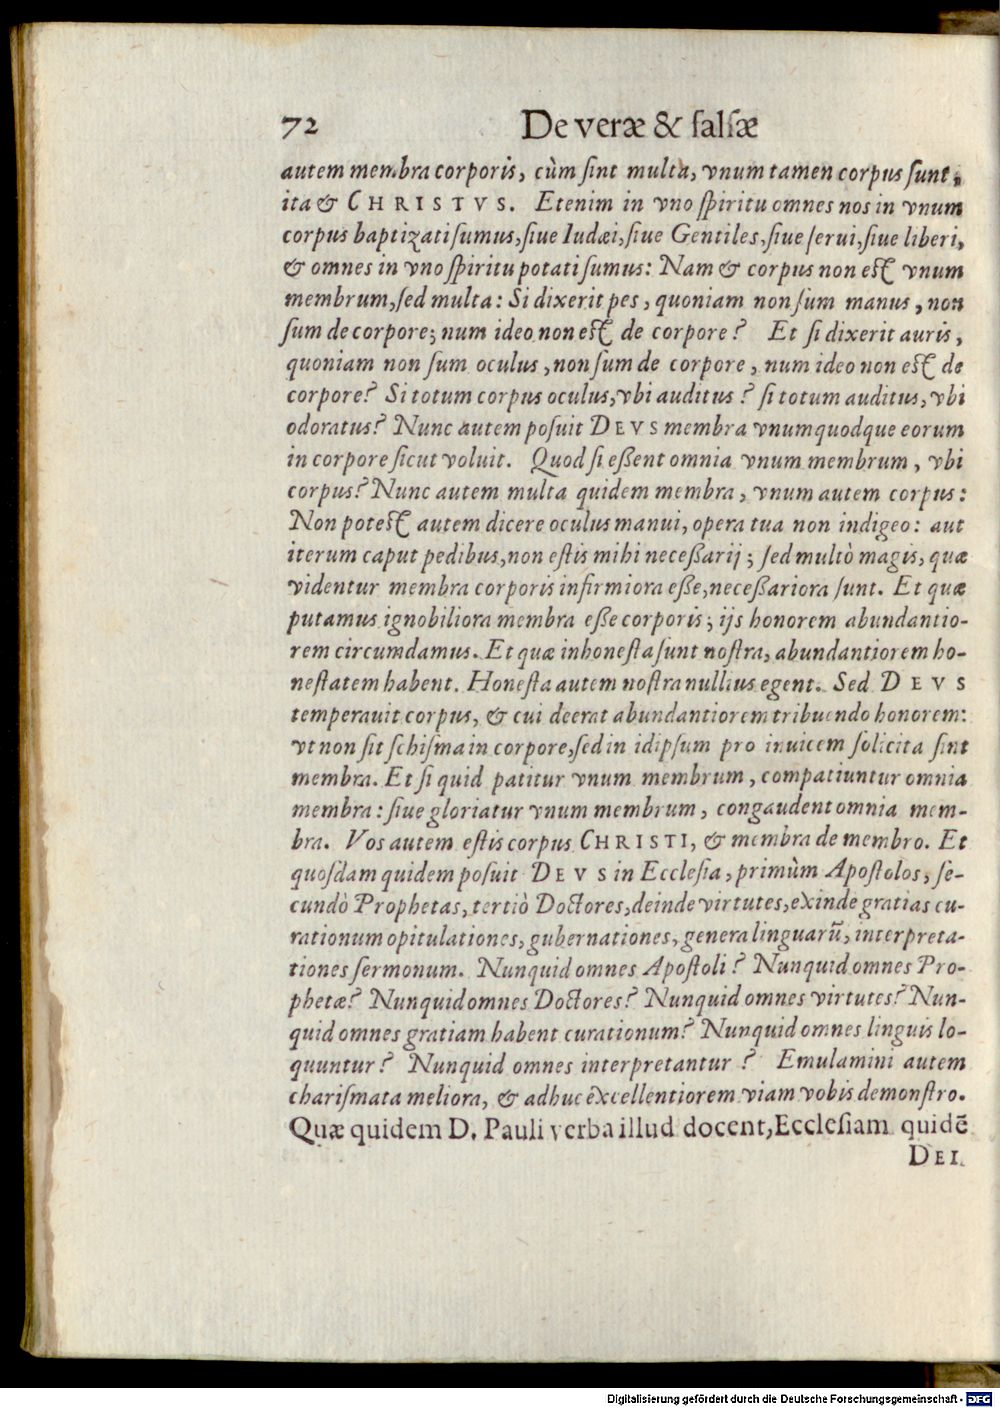 72 De veræ & falsæ
autem membra corporis, cùm sint multa, vnum tamen corpus sunt,
ita & CHRISTVS. Etenim in vno spiritu omnes nos in vnum
corpus baptizati sumus, siue Iudæi, siue Gentiles, siue serui, siue liberi,
& omnes in vno spiritu potati sumus: Nam & corpus non est vnum
membrum, sed multa: Si dixerit pes, quoniam non sum manus, non
sum de corpore; num ideo non est de corpore? Et si dixerit auris,
quoniam non sum oculus, non sum de corpore, num ideo non est de
corpore? Si totum corpus oculus, vbi auditus? si totum auditus, vbi
odoratus? Nunc autem posuit DEVS membra vnumquodque eorum
in corpore sicut voluit. Quod si eßent omnia vnum membrum, vbi
corpus? Nunc autem multa quidem membra, vnum autem corpus:
Non potest autem dicere oculus manui, opera tua non indigeo: aut
iterum caput pedibus, non estis mihi neceßarij; sed multò magis, quæ
videntur membra corporis infirmiora eße, neceßariora sunt. Et quæ
putamus ignobiliora membra eße corporis; ijs honorem abundantio-
rem circumdamus. Et quæ inhonesta sunt nostra, abundantiorem ho-
nestatem habent. Honesta autem nostra nullius egent. Sed DEVS
temperauit corpus, & cui deerat abundantiorem tribuendo honorem:
vt non sit schisma in corpore, sed in idipsum pro inuicem solicita sint
membra. Et si quid patitur vnum membrum, compatiuntur omnia
membra: siue gloriatur vnum membrum, congaudent omnia mem-
bra. Vos autem estis corpus CHRISTI, & membra de membro. Et
quosdam quidem posuit DEVS in Ecclesia, primùm Apostolos, se-
cundò Prophetas, tertiò Doctores, deinde virtutes, exinde gratias cu-
rationum opitulationes, gubernationes, genera linguarũ, interpreta-
tiones sermonum. Nunquid omnes Apostoli? Nunquid omnes Pro-
phetæ? Nunquid omnes Doctores? Nunquid omnes virtutes? Nun-
quid omnes gratiam habent curationum? Nunquid omnes linguis lo-
quuntur? Nunquid omnes interpretantur? Emulamini autem
charismata meliora, & adhuc excellentiorem viam vobis demonstro.
Quæ quidem D. Pauli verba illud docent, Ecclesiam quidẽ
DEI
Digitalisierung gefördert durch die Deutsche Forschungsgemeinschaft - DFG